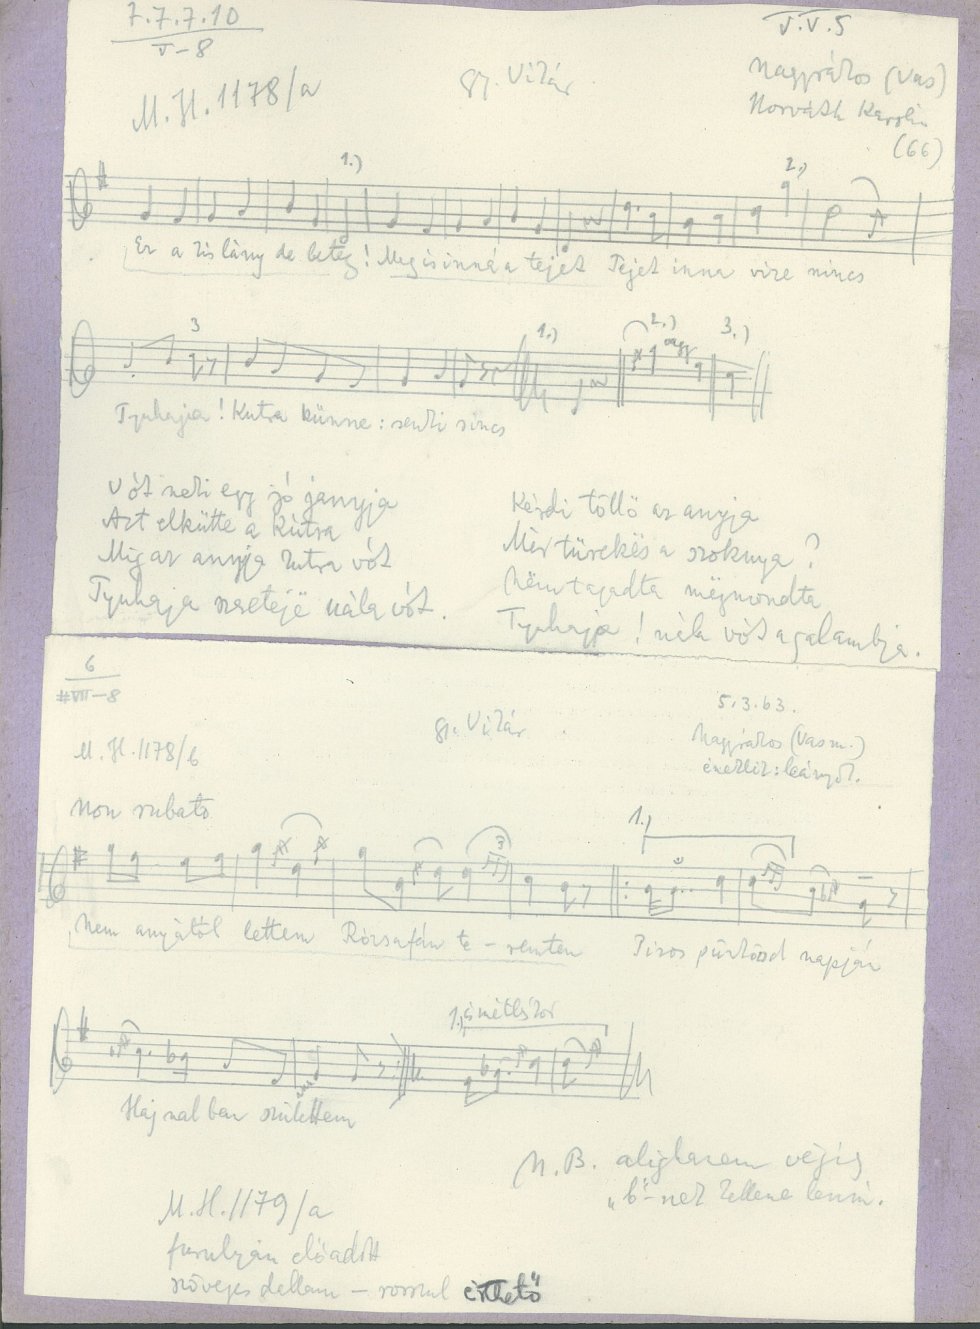 7.7.7.10
V-8
J.V.5
M.H. 1178/a
gy. Vikár
Nagyrákos (Vas)
Horváth
(66)
1.)
2.)
Ez a kislány de beteg! Megis inná a tejet Tejet inna vize nincs
3
1.)
2.)
vagy
3.)
Tyuhaja! Kutra künne: senki sincs
Vót neki egy jó janyja
Azt elkütte a kútra
Mig az annyja kutra vót
Tyuhaja szeretejë nála vót.
Kérdi tőllö az anyja
Mér türekës a szoknya?
Nëm tagadta mëgmondta
Tyuhajja! nála vót a galambja.
6
#VII-8
5.3.63.
gy. Vikár
M.H. 1178/b
Nagyrákos (Vas m.)
énekli: leányok.
Non rubato
1.)
3
Nem anyától lettem Rózsafán te-remtem Piros pünkösd napján
1. ismétléskor
Hajnalban születtem
N.B. alighanem végig
"b"-nek kellene lenni.
M.H. 1179/a
furulyán előadott
szöveges dallam - rosszul érthető